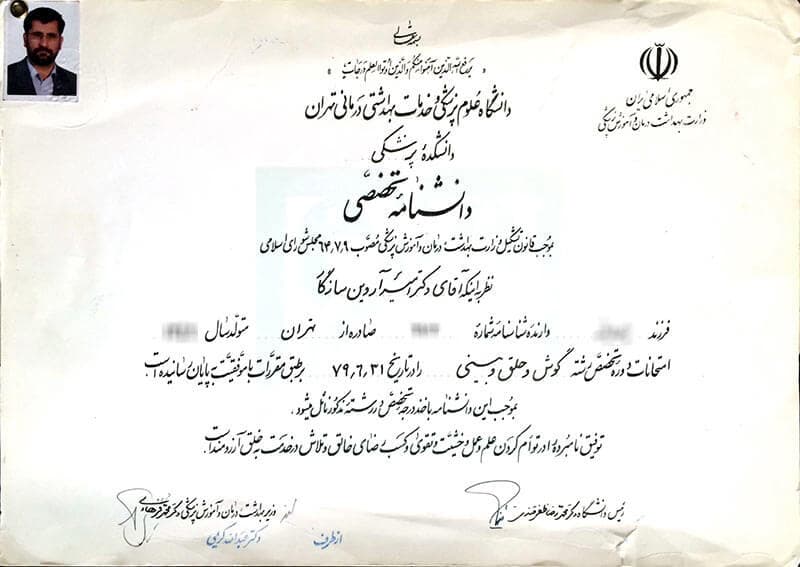 بسمه تعالی
« یرفع الله الذین آمنوا منکم والذین اوتوا العلم درجات »
جمهوری اسلامی ایران
وزارت بهداشت درمان و آموزش پزشکی
دانشگاه علوم پزشکی و خدمات بهداشتی درمانی تهران
دانشکدهٔ پزشکی
دانشنامهٔ تخصصی
بموجب قانون تشکیل وزارت بهداشت، درمان و آموزش پزشکی مصوب ۶۴/۷/۹ مجلس شورای اسلامی
نظر به اینکه آقای دکتر امیر آروین سازگار
فرزند دارنده شناسنامه شماره صادره از تهران متولد سال
امتحانات دوره تخصص رشته گوش و حلق و بینی را در تاریخ ۷۹/۶/۳۱ برطبق مقررات با موفقیت به پایان رسانیده است.
بموجب این دانشنامه به اخذ درجه تخصص در رشته مذکور نائل میشود.
توفیق نامبرده را در توام کردن علم و عمل و خشیت و تقوی و کسب رضای خالق و تلاش در خدمت به خلق آرزومند است.
رئیس دانشگاه دکتر محمدرضا ظفرقندی
وزیر بهداشت، درمان و آموزش پزشکی دکتر محمد فرهادی
از طرف دکتر عبدالله کریمی